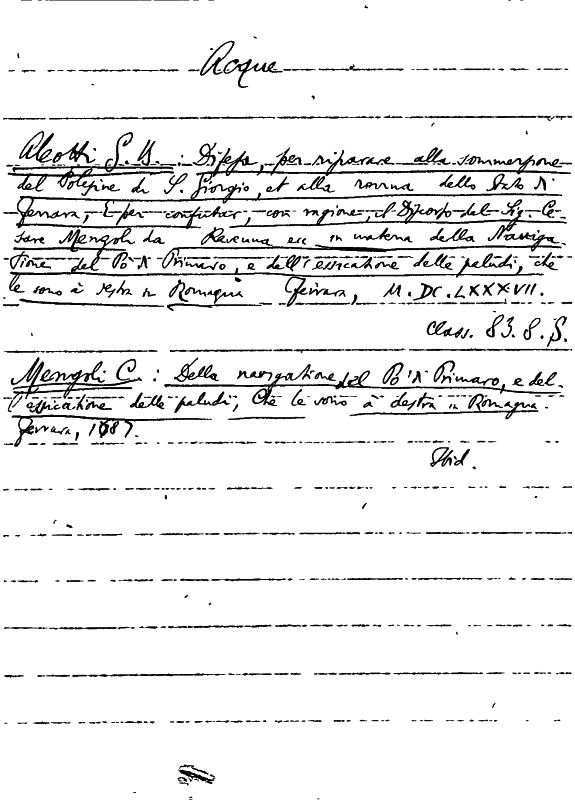 Acque
Aleotti G. B. : Difesa, per riparare alla sommersione
del Polesine di S. Giorgio, et alla rovina dello Stato di
Ferrara, E per confutar, con ragione, il Discorso del Sig. Ce-
sare Mengoli da Ravenna ecc in materia della Naviga
tione del Pò di Primaro, e dell'essicatione delle paludi, che
le sono à destra in Romagna Ferrara, M. DC. LXXXVII.
Class. 83. 8. S.
Mengoli C. : Della navigatione del Pò di Primaro, e del-
l'essicatione delle paludi, Che le sono à destra in Romagna.
Ferrara, 1687.
Ibid.